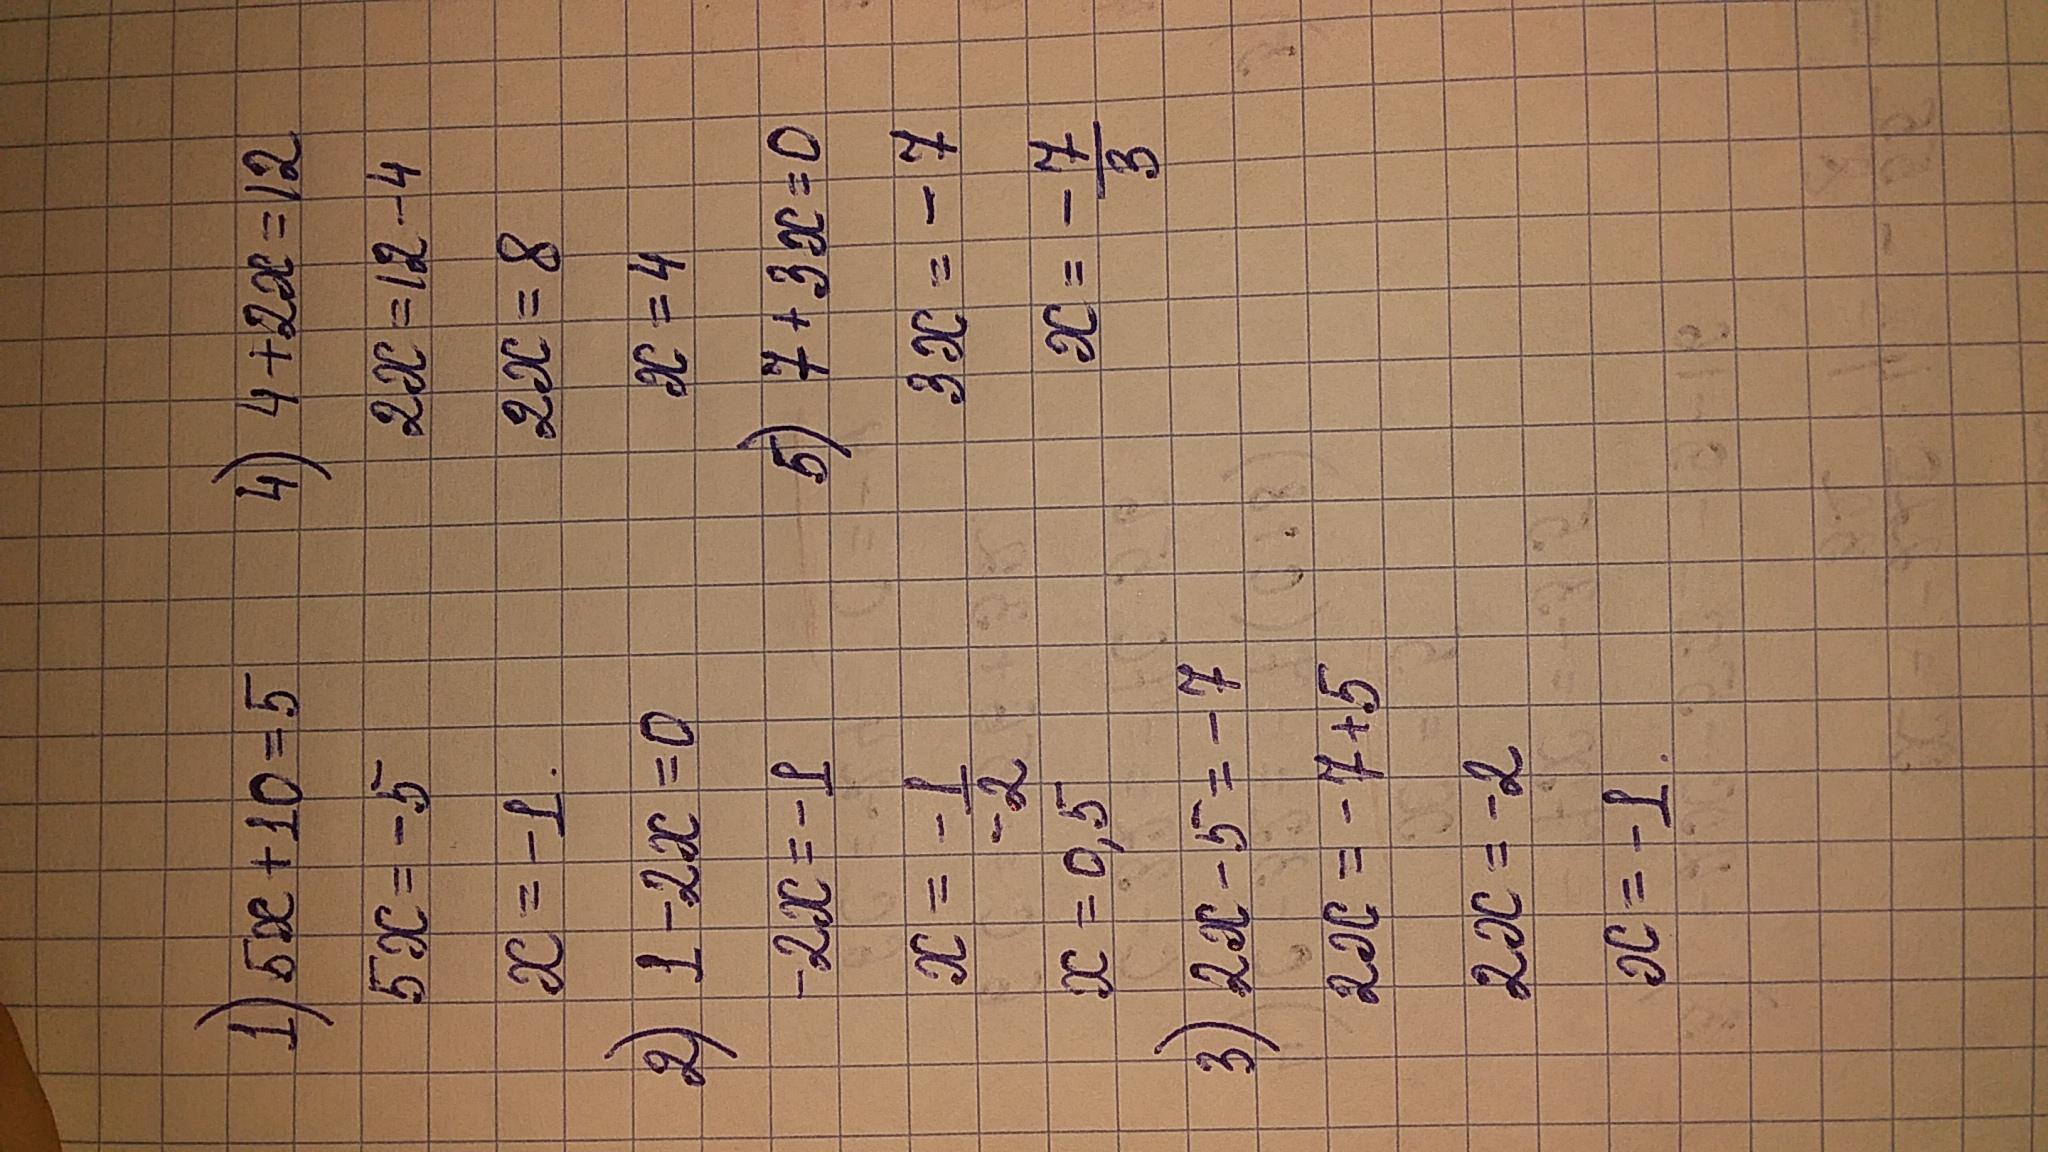 1) 5x + 10 = 5
5x = -5
x = -1.
2) 1 - 2x = 0
-2x = -1
x = -1/-2
x = 0,5
3) 2x - 5 = -7
2x = -7+5
2x = -2
x = -1.
4) 4 + 2x = 12
2x = 12 - 4
2x = 8
x = 4
5) 7 + 3x = 0
3x = -7
x = -7/3